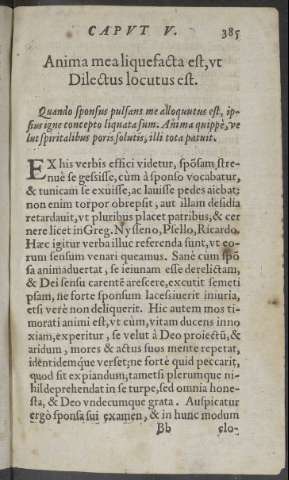 CAPVT V. 385
Anima mea liquefacta est, vt
Dilectus locutus est.
Quando sponsus pulsans me alloquutus est, ip-
sius igne concepto liquata sum. Anima quippè, ve
lut spiritalibus poris solutis, illi tota patuit.
EX his verbis effici videtur, spõsam stre-
nuè se gessisse, cùm à sponso vocabatur,
& tunicam se exuisse, ac lauisse pedes aiebat;
non enim torpor obrepsit, aut illam desidia
retardauit, vt pluribus placet patribus, & cer
nere licet in Greg. Nysseno, Psello, Ricardo.
Hæc igitur verba illuc referenda sunt, vt eo-
rum sensum venari queamus. Sanè cùm spõ
sa animaduertat, se ieiunam esse derelictam,
& Dei sensu carentē arescere, excutit semeti
psam, ne fortè sponsum lacessiuerit iniuria,
etsi verè non deliquerit. Hic autem mos ti-
morati animi est, vt cùm, vitam ducens inno
xiam, experitur, se velut à Deo proiectũ, &
aridum, mores & actus suos mente repetat,
identidemque verset; ne fortè quid peccarit,
quod sit expiandum, tametsi plerumque ni-
hil deprehendat in se turpe, sed omnia hone-
sta, & Deo vndecumque grata. Auspicatur
ergò sponsa sui examen, & in hunc modum
Bb elo-